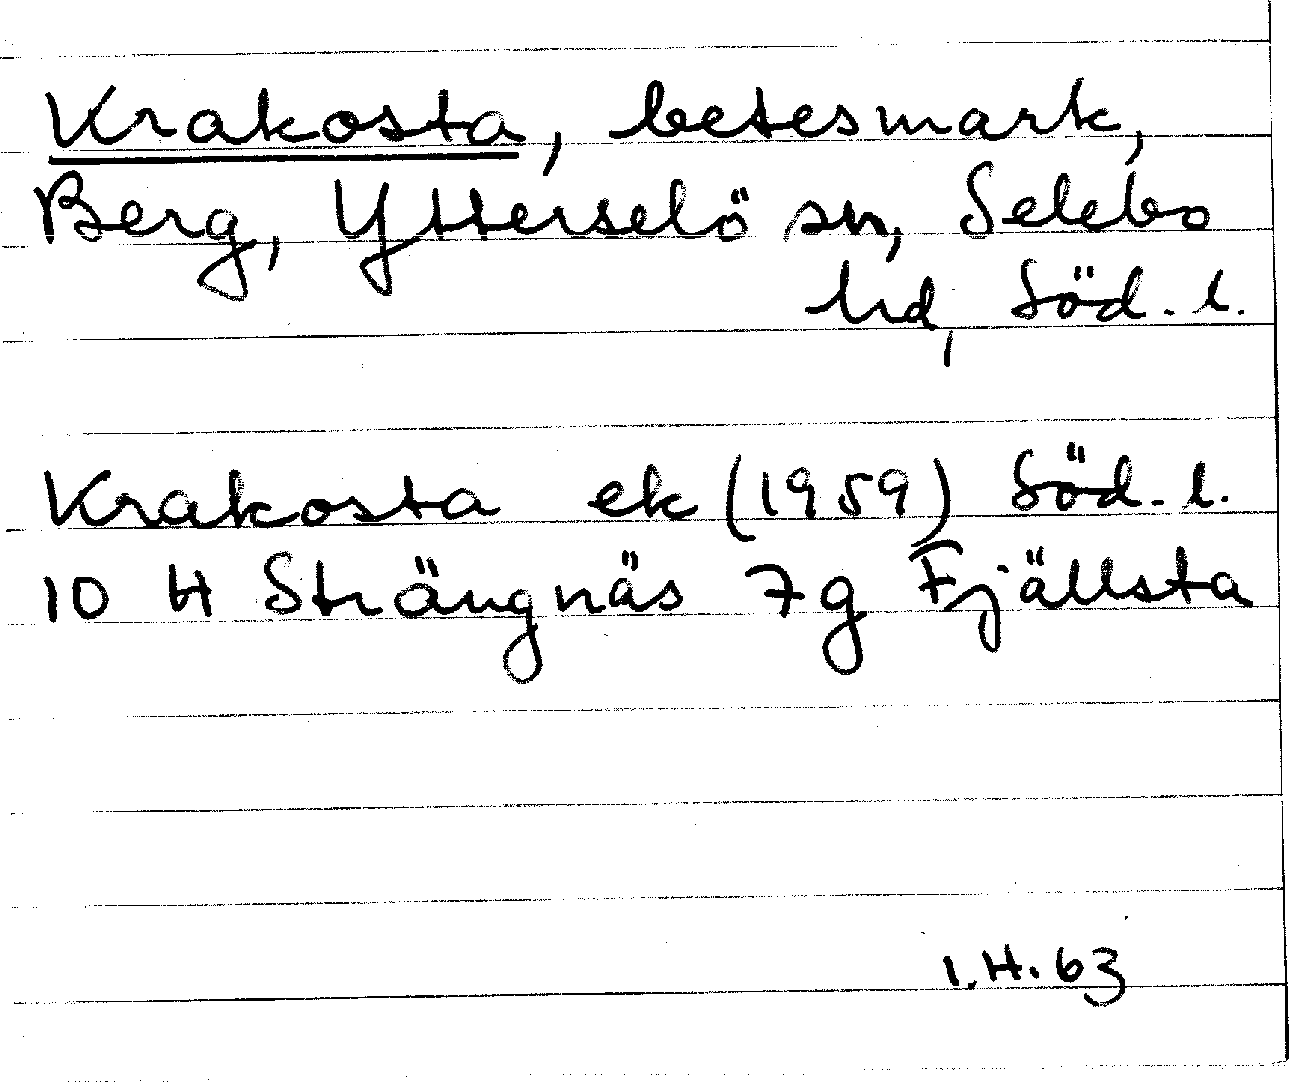 Krakosta, betesmark,
Berg, Ytterselö sn, Selebo
hd, Söd. l.
Krakosta ek (1959) Söd. l.
10 H Strängnäs 7g Fjällsta
I.H. 63